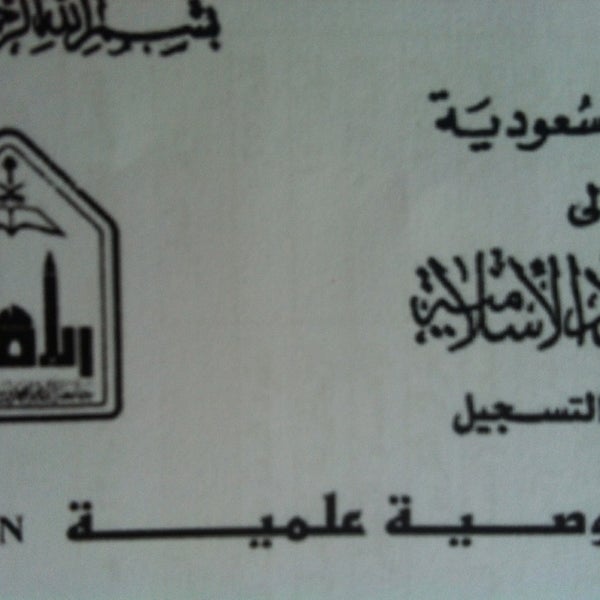 بسم الله الر
سُعوديَة
لى
الأسلامية
التسجيل
وصية علمية N